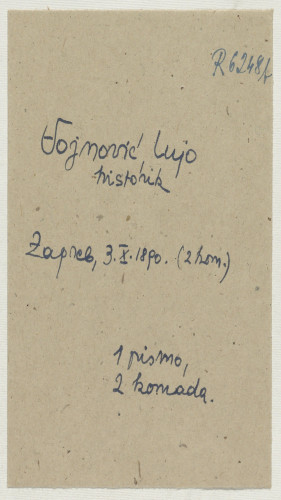 R6248/
Vojnović, Lujo
historik
Zagreb, 3.X.1890. (2 kom.)
1 pismo,
2 komada.